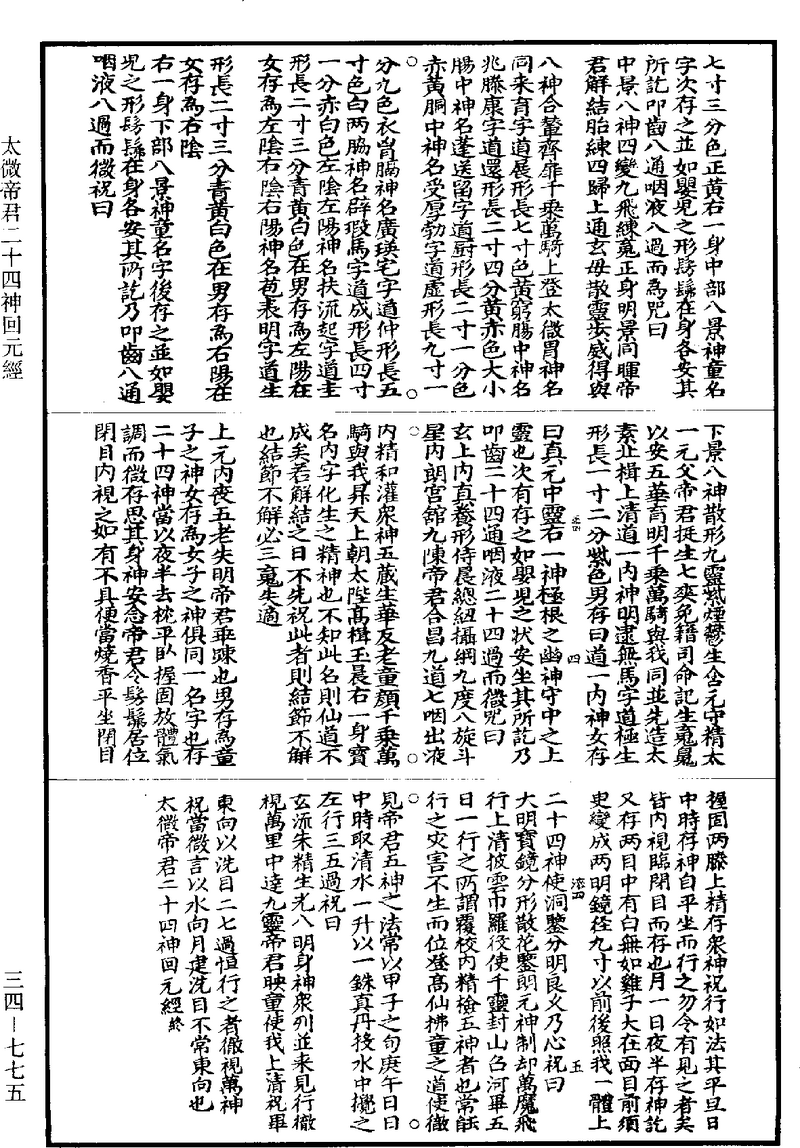 七寸三分色正黃右一身中部八景神童名
字次存之並如嬰兒之形髣髴在身各安其
所訖叩齒八通咽液八過而為咒曰
中景八神四變九飛練寃正身明景同暉帝
君解結胎練四歸上通玄母散靈步威得與
八神合輦齊扉千乘萬騎上登太微胃神名
同来育字道展形長七寸色黃窮腸中神名
兆滕康字道還形長二寸四分黃赤色大小
腸中神名蓬送留字道廚形長二寸一分色
赤黃胴中神名受厚勃字道虛形長九寸一
分九色衣胷膈神名廣瑛宅字道仲形長五
寸色白两脇神名辟瑕馬字道成形長四寸
一分赤白色左陰左陽神名扶流起字道圭
形長二寸三分青黃白色在男存為左陽在
女存為左陰右陰右陽神名苞表明字道生
形長二寸三分青黃白色在男存為右陽在
女存為右陰
右一身下部八景神童名字後存之並如嬰
兒之形髣髴在身各安其所訖乃叩齒八通
咽液八過而微祝曰
下景八神散形九靈紫煙鬱生含元守精太
一元父帝君挺生七爽免籍司命記生寃鬼
以安五華育明千乘萬騎與我同並先造太
素北楫上清道一内神明逮無馬字道極生
形長一寸二分紫色男存曰道一内神女存
曰真元中靈右一神極根之幽神守中之上
靈也次有存之如嬰兒之状安坐其所訖乃
叩齒二十四通咽液二十四過而微咒曰
玄上内真養形侍晨總紐攝綱九度八旋斗
星内朗宫舘九陳帝君合昌九道七咽出液
内精和灌衆神五蔵生華反老童顔千乘萬
騎與我昇天上朝太陛髙楫玉晨右一身寳
名内字化生之精神也不知此名則仙道不
成矣若解結之日不先祝此者則結節不解
也結節不解必三寃失適
上元内夜五老失明帝君乖踈也男存為童
子之神女存為女子之神俱同一名字也存
二十四神當以夜半去枕平卧握固放體氣
調而微存思其身神安念帝君令髣髴居位
閉目内視之如有不具便當燒香平坐閉目
握固两膝上精存衆神祝行如法其平旦日
中時存神自平坐而行之勿令有見之者矣
皆内視臨閉目而存也月一日夜半存神訖
又存两目中有白無如雞子大在面目前須
臾變成两明鏡徑九寸以前後照我一體上
二十四神使洞鑒分明良久乃心祝曰
大明寳鏡分形散花鑒朗元神制却萬魔飛
行上清披雲巾羅役使千靈封山召河畢五
日一行之所謂覆校内精檢五神者也常䏻
行之灾害不生而位登髙仙拂童之道使徹
見帝君五神之法常以甲子之旬庚午日日
中時取清水一升以一銖真丹投水中攪之
左行三五過祝曰
玄流朱精生光八明身神衆列並来見行徹
視萬里中達九靈帝君映童使我上清祝畢
東向以洗目二七過恒行之者徹視萬神
祝當微言以水向月建洗目不常東向也
太微帝君二十四神回元經終
四
五
太微帝君二十四神回元經
三四—七七五